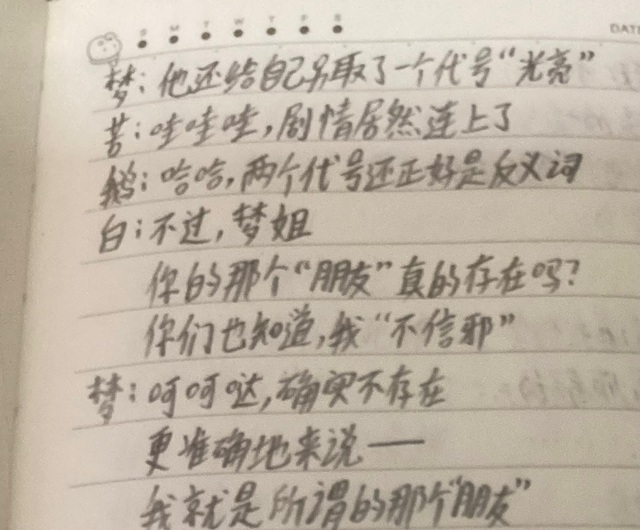 S M T W T F S
DATE
梦:他还给自己另取了一个代号“光亮”
苦:哇哇哇,剧情居然连上了
鹅:哈哈,两个代号还正好是反义词
白:不过,梦姐
你的那个“朋友”真的存在吗?
你们也知道,我“不信邪”
梦:呵呵哒,确实不存在
更准确地来说——
我就是所谓的那个“朋友”